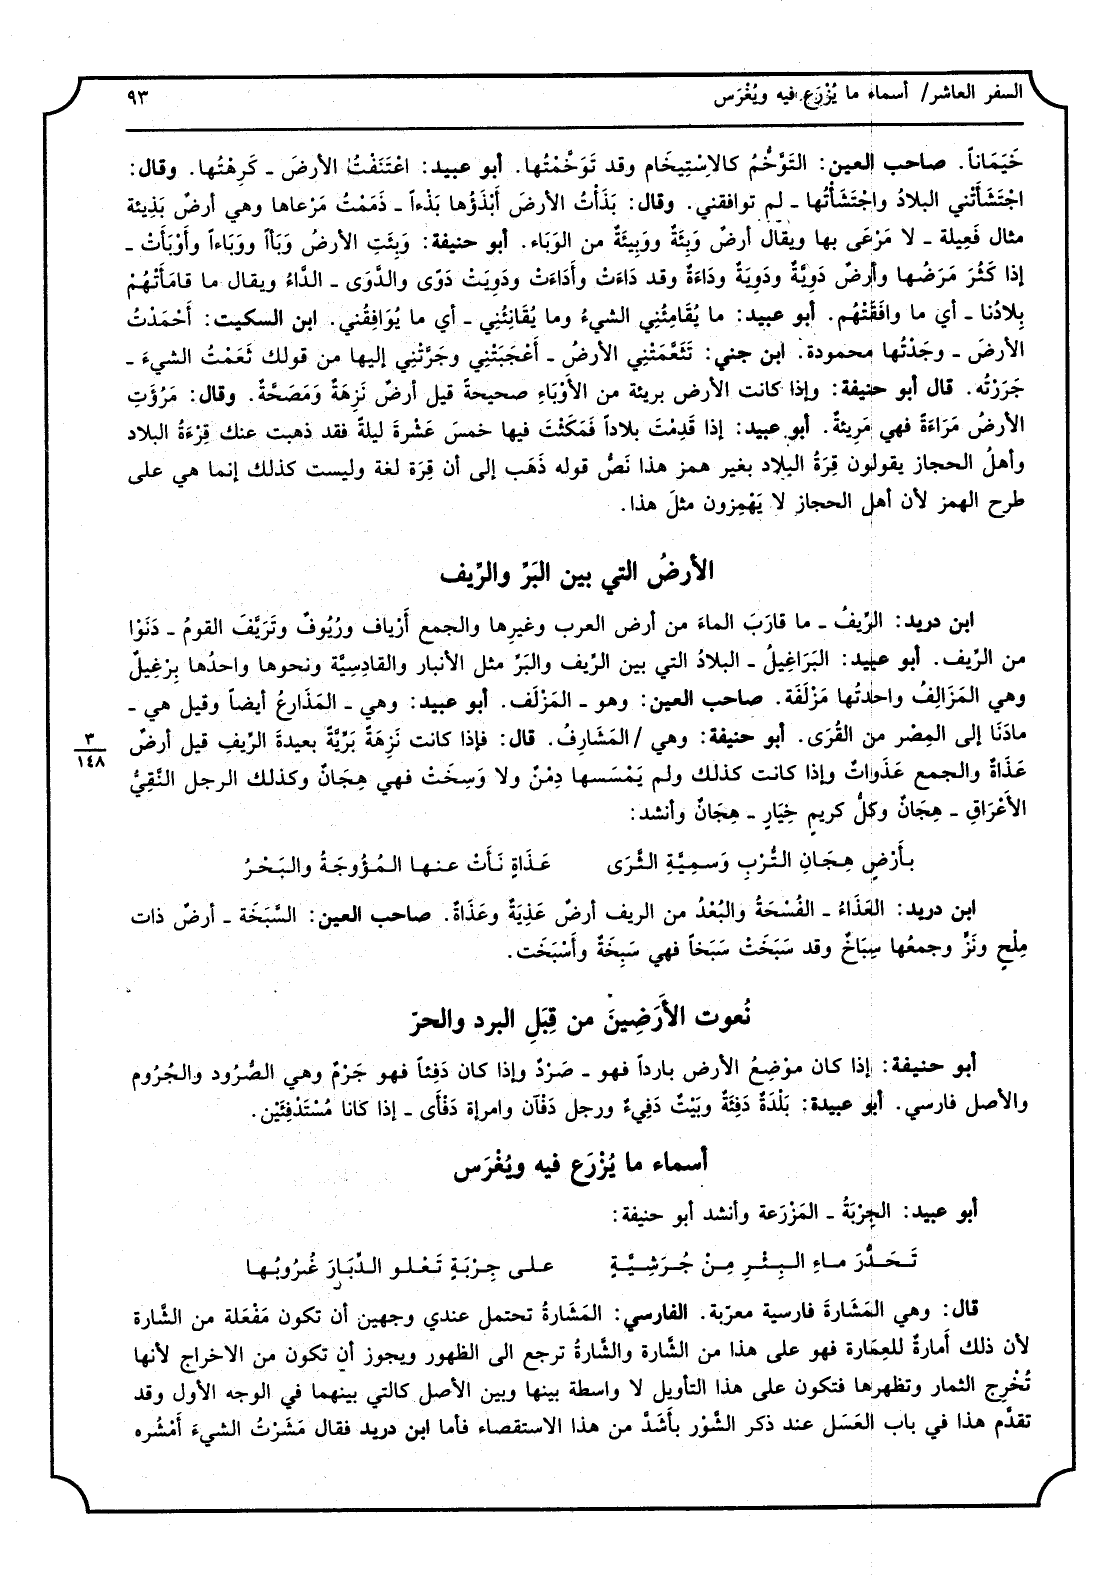 السفر العاشر/ أسماء ما يُزْرَع فيه ويُغْرَس ٩٣
خَيَمَاناً. صاحب العين: التَوَخُّمُ كالاسْتِيخَام وقد تَوَخَّمْتُها. أبو عبيد: اعْتَنَفْتُ الأرضَ ـ كَرِهْتُها. وقال:
اجْتَشَأَتْني البلادُ واجْتَشَأْتُها ـ لم توافقني. وقال: بَذَأْتُ الأرضَ أَبْذَؤُها بَذْءاً ـ ذَمَمْتُ مَرْعاها وهي أرضٌ بَذِيئة
مثال فَعِيلة ـ لا مَرْعَى بها ويقال أرضٌ وَبِئَةٌ ووَبِيئَةٌ من الوَبَاء. أبو حنيفة: وَبِئَتِ الأرضُ وَبَأً ووَبَاءاً وأَوْبَأَتْ ـ
إذا كَثُرَ مَرَضُها وأرضٌ دَوِيَّةٌ ودَوِيَةٌ ودَاءَةٌ وقد دَاءَتْ وأَدَاءَتْ ودَوِيَتْ دَوًى والدَّوَى ـ الدَّاءُ ويقال ما قامَأَتْهُمْ
بِلادُنا ـ أي ما وافَقَتْهُم. أبو عبيد: ما يُقَامِئُنِي الشيءُ وما يُقَانِئُنِي ـ أي ما يُوَافِقُني. ابن السكيت: أَحْمَدْتُ
الأرضَ ـ وجَدْتُها محمودة. ابن جني: تَثَمَّمَتْنِي الأرضُ ـ أَعْجَبَتْنِي وجَرَّتْنِي إليها من قولك ثَمَمْتُ الشيءَ ـ
جَرَرْتُه. قال أبو حنيفة: وإذا كانت الأرض بريئة من الأَوْبَاءِ صحيحةً قيل أرضٌ نَزِهَةٌ وَمَصَحَّةٌ. وقال: مَرُؤَتِ
الأرضُ مَرَاءَةً فهي مَرِيئةٌ. أبو عبيد: إذا قَدِمْتَ بلاداً فَمَكَثْتَ فيها خمسَ عَشْرَةَ ليلةً فقد ذهبت عنك قِرْءَةُ البلاد
وأهلُ الحجاز يقولون قِرَةُ البلاد بغير همز هذا نَصُّ قوله ذَهَب إلى أن قِرَة لغة وليست كذلك إنما هي على
طرح الهمز لأن أهل الحجاز لا يَهْمِزون مثلَ هذا.
الأرضُ التي بين البَرِّ والرِّيف
ابن دريد: الرِّيفُ ـ ما قارَبَ الماءَ من أرض العرب وغيرِها والجمع أَرْياف ورُيُوفٌ وتَرَيَّفَ القومُ ـ دَنَوْا
من الرِّيف. أبو عبيد: البَرَاغِيلُ ـ البلادُ التي بين الرِّيف والبَرِّ مثل الأنبار والقادِسِيَّة ونحوها واحدُها بِرْغِيلٌ
وهي المَزَالِفُ واحدتُها مَزْلَفَة. صاحب العين: وهو ـ المَزْلَف. أبو عبيد: وهي ـ المَذَارعُ أيضاً وقيل هي ـ
مادَنَا إلى المِصْر من القُرَى. أبو حنيفة: وهي /المَشَارِفُ. قال: فإذا كانت نَزِهَةً بَرِّيَّةً بعيدةَ الرِّيفِ قيل أرضٌ
٣
١٤٨
عَذَاةٌ والجمع عَذَواتٌ وإذا كانت كذلك ولم يَمْسَسها دِمْنٌ ولا وَسِخَتْ فهي هِجَانٌ وكذلك الرجل النَّقِيُّ
الأَعْرَاقِ ـ هِجَانٌ وكلُّ كريمٍ خِيَارٍ ـ هِجَانٌ وأنشد:
بأَرْضٍ هِجَانِ التُّرْبِ وَسمِيَّةِ الثَّرَى عَذَاةٍ نَأَتْ عنها المُؤُوجَةُ والبَحْرُ
ابن دريد: العَذَاءُ ـ الفُسْحَةُ والبُعْدُ من الريف أرضٌ عَذِيَةٌ وعَذَاةٌ. صاحب العين: السَّبَخَة ـ أرضٌ ذات
مِلْحٍ ونَزٍّ وجمعُها سِبَاخٌ وقد سَبَخَتْ سَبَخاً فهي سَبِخَةٌ وأَسْبَخَت.
نُعوت الأَرَضِينَ من قِبَلِ البرد والحرّ
أبو حنيفة: إذا كان موْضِعُ الأرض بارداً فهو ـ صَرْدٌ وإذا كان دَفِئاً فهو جَرْمٌ وهي الصُّرُود والجُرُوم
والأصل فارسي. أبو عبيدة: بَلْدَةٌ دَفِئَةٌ وبَيْتٌ دَفِيءٌ ورجل دَفْآن وامرإة دَفْأَى ـ إذا كانا مُسْتَدْفِئَيْن.
أسماء ما يُزْرَع فيه ويُغْرَس
أبو عبيد: الجِرْبَةُ ـ المَزْرَعة وأنشد أبو حنيفة:
تَحَدُّرَ ماءِ البِئْرِ مِنْ جُرَشِيَّةٍ على جِرْبَةٍ تَعْلو الدِّبَارَ غُرُوبُها
قال: وهي المَشَارةَ فارسية معرّبة. الفارسي: المَشَارةُ تحتمل عندي وجهين أن تكون مَفْعَلة من الشَّارة
لأن ذلك أَمارةٌ للعِمَارة فهو على هذا من الشَّارة والشَّارةُ ترجع الى الظهور ويجوز أن تكون من الاخراج لأنها
تُخْرِج الثمار وتظهرها فتكون على هذا التأويل لا واسطة بينها وبين الأصل كالتي بينهما في الوجه الأول وقد
تقدَّم هذا في باب العَسَل عند ذكر الشَّوْر بأَشَدَّ من هذا الاستقصاء فأما ابن دريد فقال مَشَرْتُ الشيءَ أَمْشُره